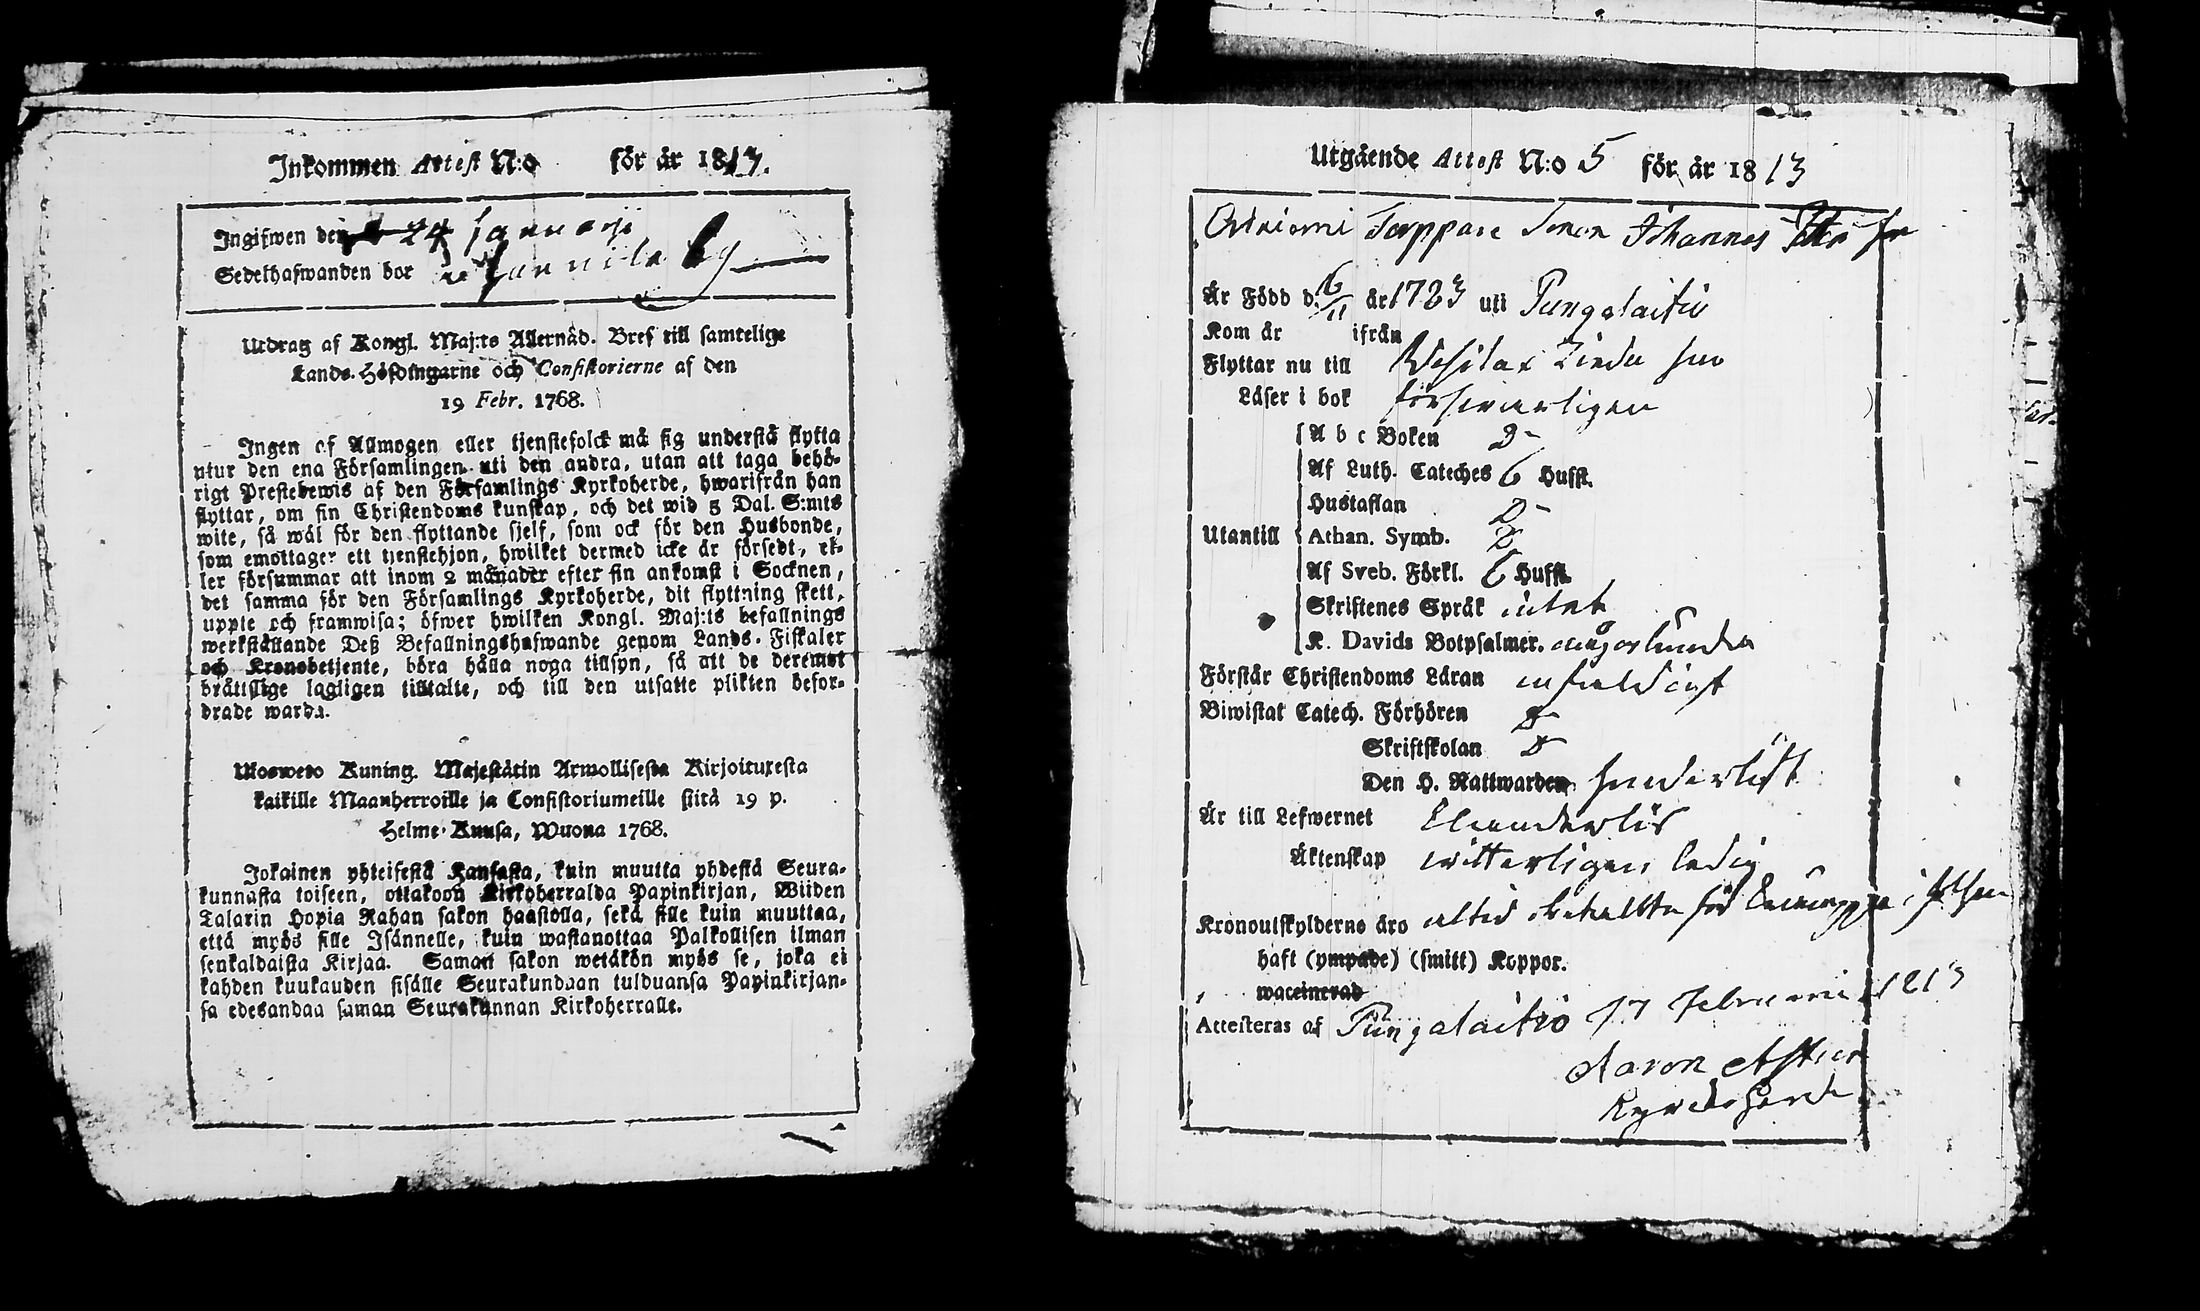 Inkommen Attest N:o för år 1813.
Ingifwen den 24 Januarji
Sedelhafwanden bor by
Utdrag af Kongl. Maj:ts Allernåd. Bref till samtelige
Lands-Höfdingarne och Consistorierne af den
19 Febr. 1768.
Ingen af Allmogen eller tjenstefolck må sig understå flytta
utur den ena Församlingen uti den andra, utan att taga behö-
rigt Prestebewis af den Församlings Kyrkoherde, hwarifrån han
flyttar, om sin Christendoms kunskap, och det wid 5 Dal. S:mts
wite, så wäl för den flyttande sjelf, som ock för den Husbonde,
som emottager ett tjenstehjon, hwilket dermed icke är försedt, el-
ler försummar att inom 2 månader efter sin ankomst i Socknen,
det samma för den Församlings Kyrkoherde, dit flyttning skett,
uppte och framwisa; öfwer hwilken Kongl. Maj:ts befallnings
werkställande Deß Befallningshafwande genom Lands-Fiskaler
och Kronobetjente, böra hålla noga tillsyn, så att de deremot
bråttslige lagligen tilltalte, och till den utsatte plikten befor-
drade warda.
Ulosweto Kuning. Majestätin Armollisesta Kirjoituxesta
kaikille Maanherroille ja Consistoriumeille siitä 19 p.
Helme-Kuusa, Wuona 1768.
Jokainen yhteisestä Kansasta, kuin muutta yhdestä Seura-
kunnasta toiseen, ottakoon Kirkoherralda Papinkirjan, Wiiden
Talarin Hopia Rahan sakon haastolla, sekä sille kuin muuttaa,
että myös sille Isännelle, kuin wastanottaa Palkollisen ilman
senkaldaista Kirjaa. Saman sakon wetäkön myös se, joka ei
kahden kuukauden sisälle Seurakundaan tulduansa Papinkirjan-
sa edesandaa saman Seurakunnan Kirkoherralle.
Utgående Attest N:o 5 för år 1813
Torppare Sonen Johannes
Är Född d. 16/11 år 1783 uti Pungalaitio
Kom år ifrån
Flyttar nu till
Läser i bok försvarligen
A b c Boken
Af Luth. Cateches 6 Hufst.
Hustaflan
Utantill Athan. Symb.
Af Sveb. Förkl. 6 Hufst.
Skriftenes Språk intet
K. Davids Botpsalmer. någorlunda
Förstår Christendoms Läran enfaldigt
Biwistat Catech. Förhören
Skriftskolan
Den H. Nattwarden
Är till Lefwernet
Äktenskap witterligen ledig
Kronoutskylderne äro altid betallta för
haft (ympade) (smitt) Koppor.
waccinerad
Attesteras af Pungalaitio 17 Februarii 1813
Aaron
Kyrkoherde